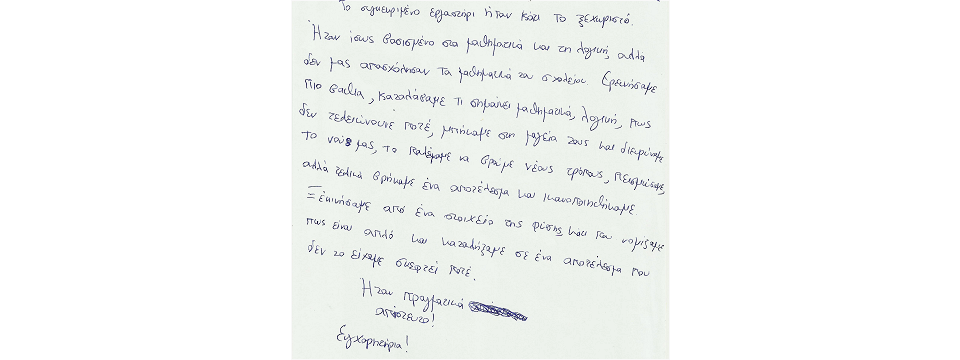 Το συγκεκριμένο εργαστήρι ήταν κάτι το ξεχωριστό.
Ήταν ίσως βασισμένο στα μαθηματικά και τη λογική, αλλά
δεν μας απασχόλησαν τα μαθηματικά του σχολείου. Ερευνήσαμε
πιο βαθιά, καταλάβαμε τι σημαίνει μαθηματικά, λογική, πως
δεν τελειώνουνε ποτέ, μπήκαμε στη μαγεία τους και διευρύναμε
το νου μας, το παλέψαμε να βρούμε νέους τρόπους, πεισμώσαμε,
αλλά τελικά βρήκαμε ένα αποτέλεσμα και ικανοποιηθήκαμε
Ξεκινήσαμε από ένα στοιχείο της φύσης κάτι που νομίζαμε
πως είναι απλό και καταλήξαμε σε ένα αποτέλεσμα που
δεν το είχαμε σκεφτεί ποτέ.
Ήταν πραγματικά
απίστευτο!
Συγχαρητήρια!